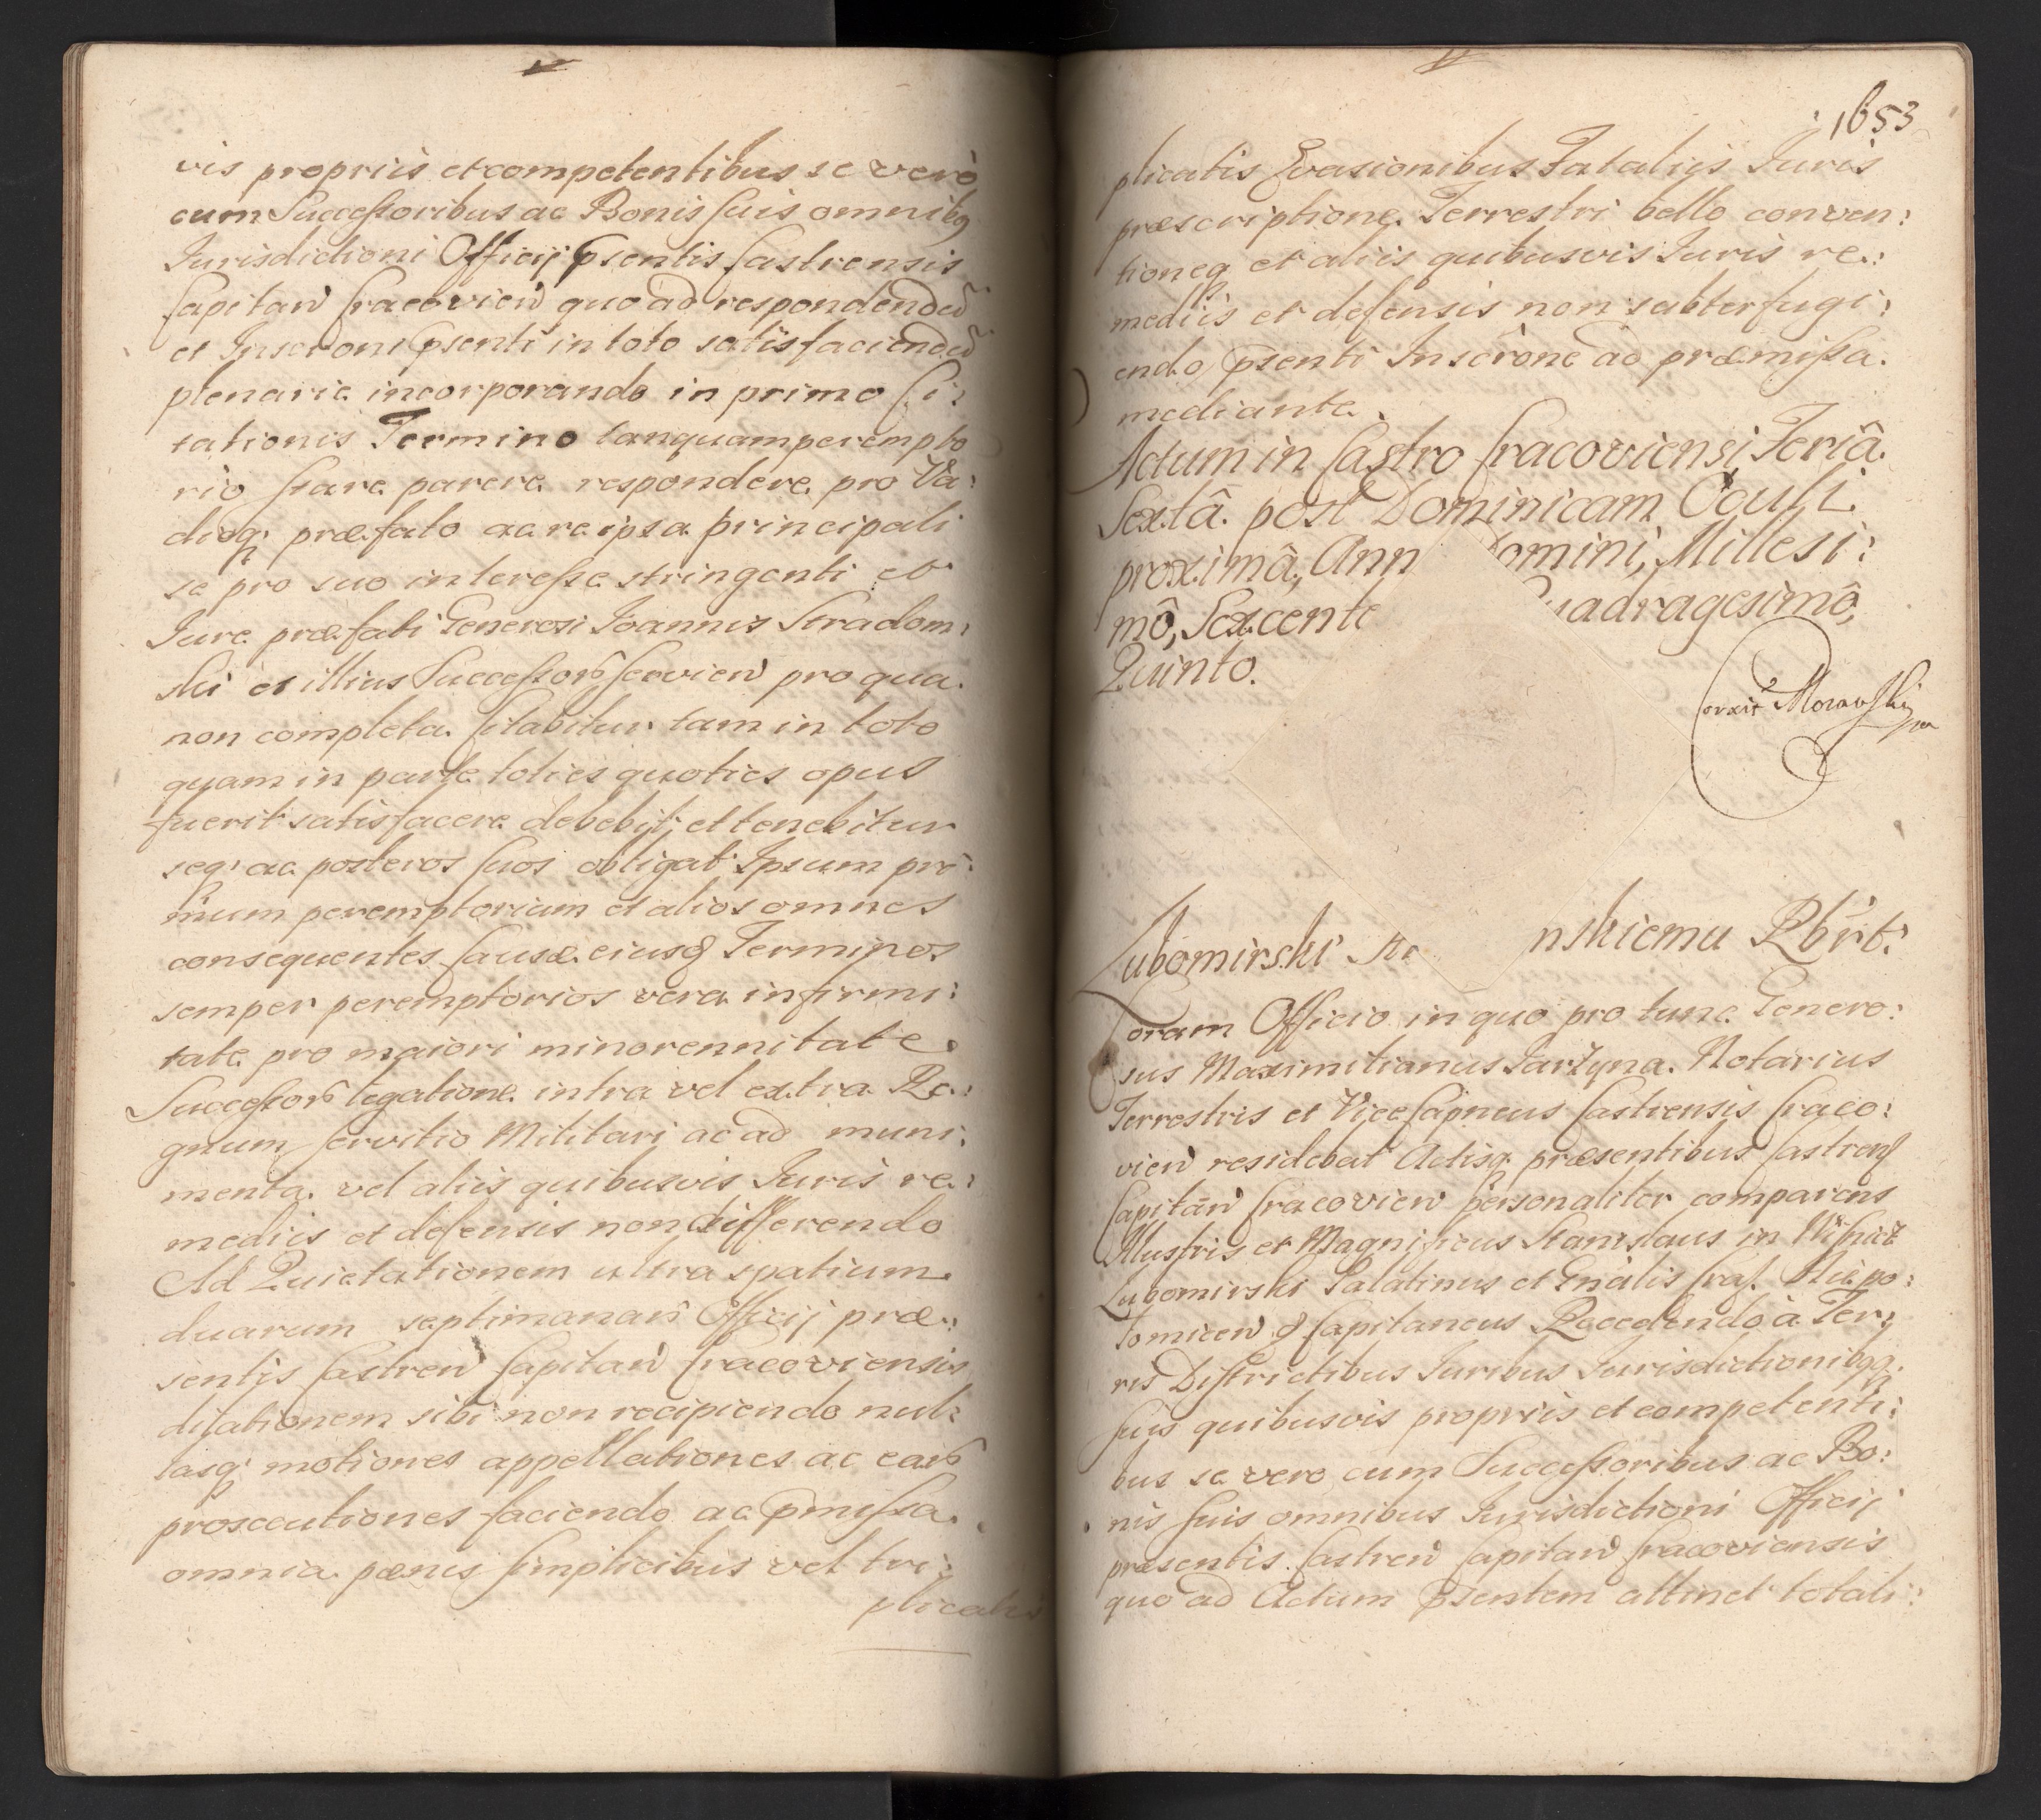 vis propriis et competentibus se verò
cum Successoribus ac Bonis suis omnibq
Jurisdictioni Officij psentis Castrensis
Capitan̄ Cracovien̄ quo ad respondendū
et Inscrōni psenti in toto satisfaciendū
plenarie incorporando in primo Ci:
tationis Termino tanquam perempto
rio stare parere respondere pro Va:
dioq; præfato ac re ipsa principali
se pro suo interesse stringenti et
Jure præfati Generosi Joannis Stradom:
ski et illius Successorū servien̄ pro qua
non completa Citabitur tam in toto
quam in parte toties quoties opus
fuerit satisfacere debebit, et tenebitur
seq; ac posteros suos obligat Ipsum pri:
mum peremptorium et alios omnes
consequentes Causæ eiusq Terminos
semper peremptorios vera infirmi:
tate pro maiori minorennitate
Successorū legatione intra vel extra Re:
gnum servitio Militari ac ad muni:
menta vel aliis quibusvis Juris re:
mediis et defensis non differendo
Ad Quietationem ultra spatium
duarum septimanarū Officij præ:
sentis Castren̄ Capitan̄ Cracoviensis
dilationem sibi non recipiendo nul:
lasq; motiones appellationes ac earū
prosecutiones faciendo ac pmissa
omnia pœnis simplicibus vel tri:
plicatis
1653
plicatis Evasionibus Fatalijs Juris
præscriptione Terrestri bello conven:
tioneq et aliis quibusvis Juris re:
mediis et defensis non subterfugi:
endo psenti Inscrōne ad præmissa
mediante.
Actum in Castro Cracoviensi Feriâ
Sextâ post Dominicam Oculi
proximâ, Ann omini, Millesi:
mô, Sexcente uadragesimô,
Quinto.
Correxit Morawski
mp
Lubomirski St nskiemu Rbrt:
Coram Officio in quo pro tunc Genero:
sus Maximilianus Jarzyna Notarius
Terrestris et Vicecapneus Castrensis Craco:
vien̄ residebat Actisq præsentibus Castren̄
Capitān̄ Cracovien̄ personaliter comparens
Illustris et Magnificus Stanislaus in Wisnicz
Lubomirski Palatinus et Gnālis Crac. Niepo:
lomicen̄ & Capitaneus Recedendo à Ter:
ris Districtibus Juribus Jurisdictionibqq
suis quibusvis propriis et competenti:
bus se vero cum Successoribus ac Bo:
nis suis omnibus Jurisdictioni Officij
præsentis Castren̄ Capitan̄ Cracoviensis
quo ad Actum psentem attinet totali: